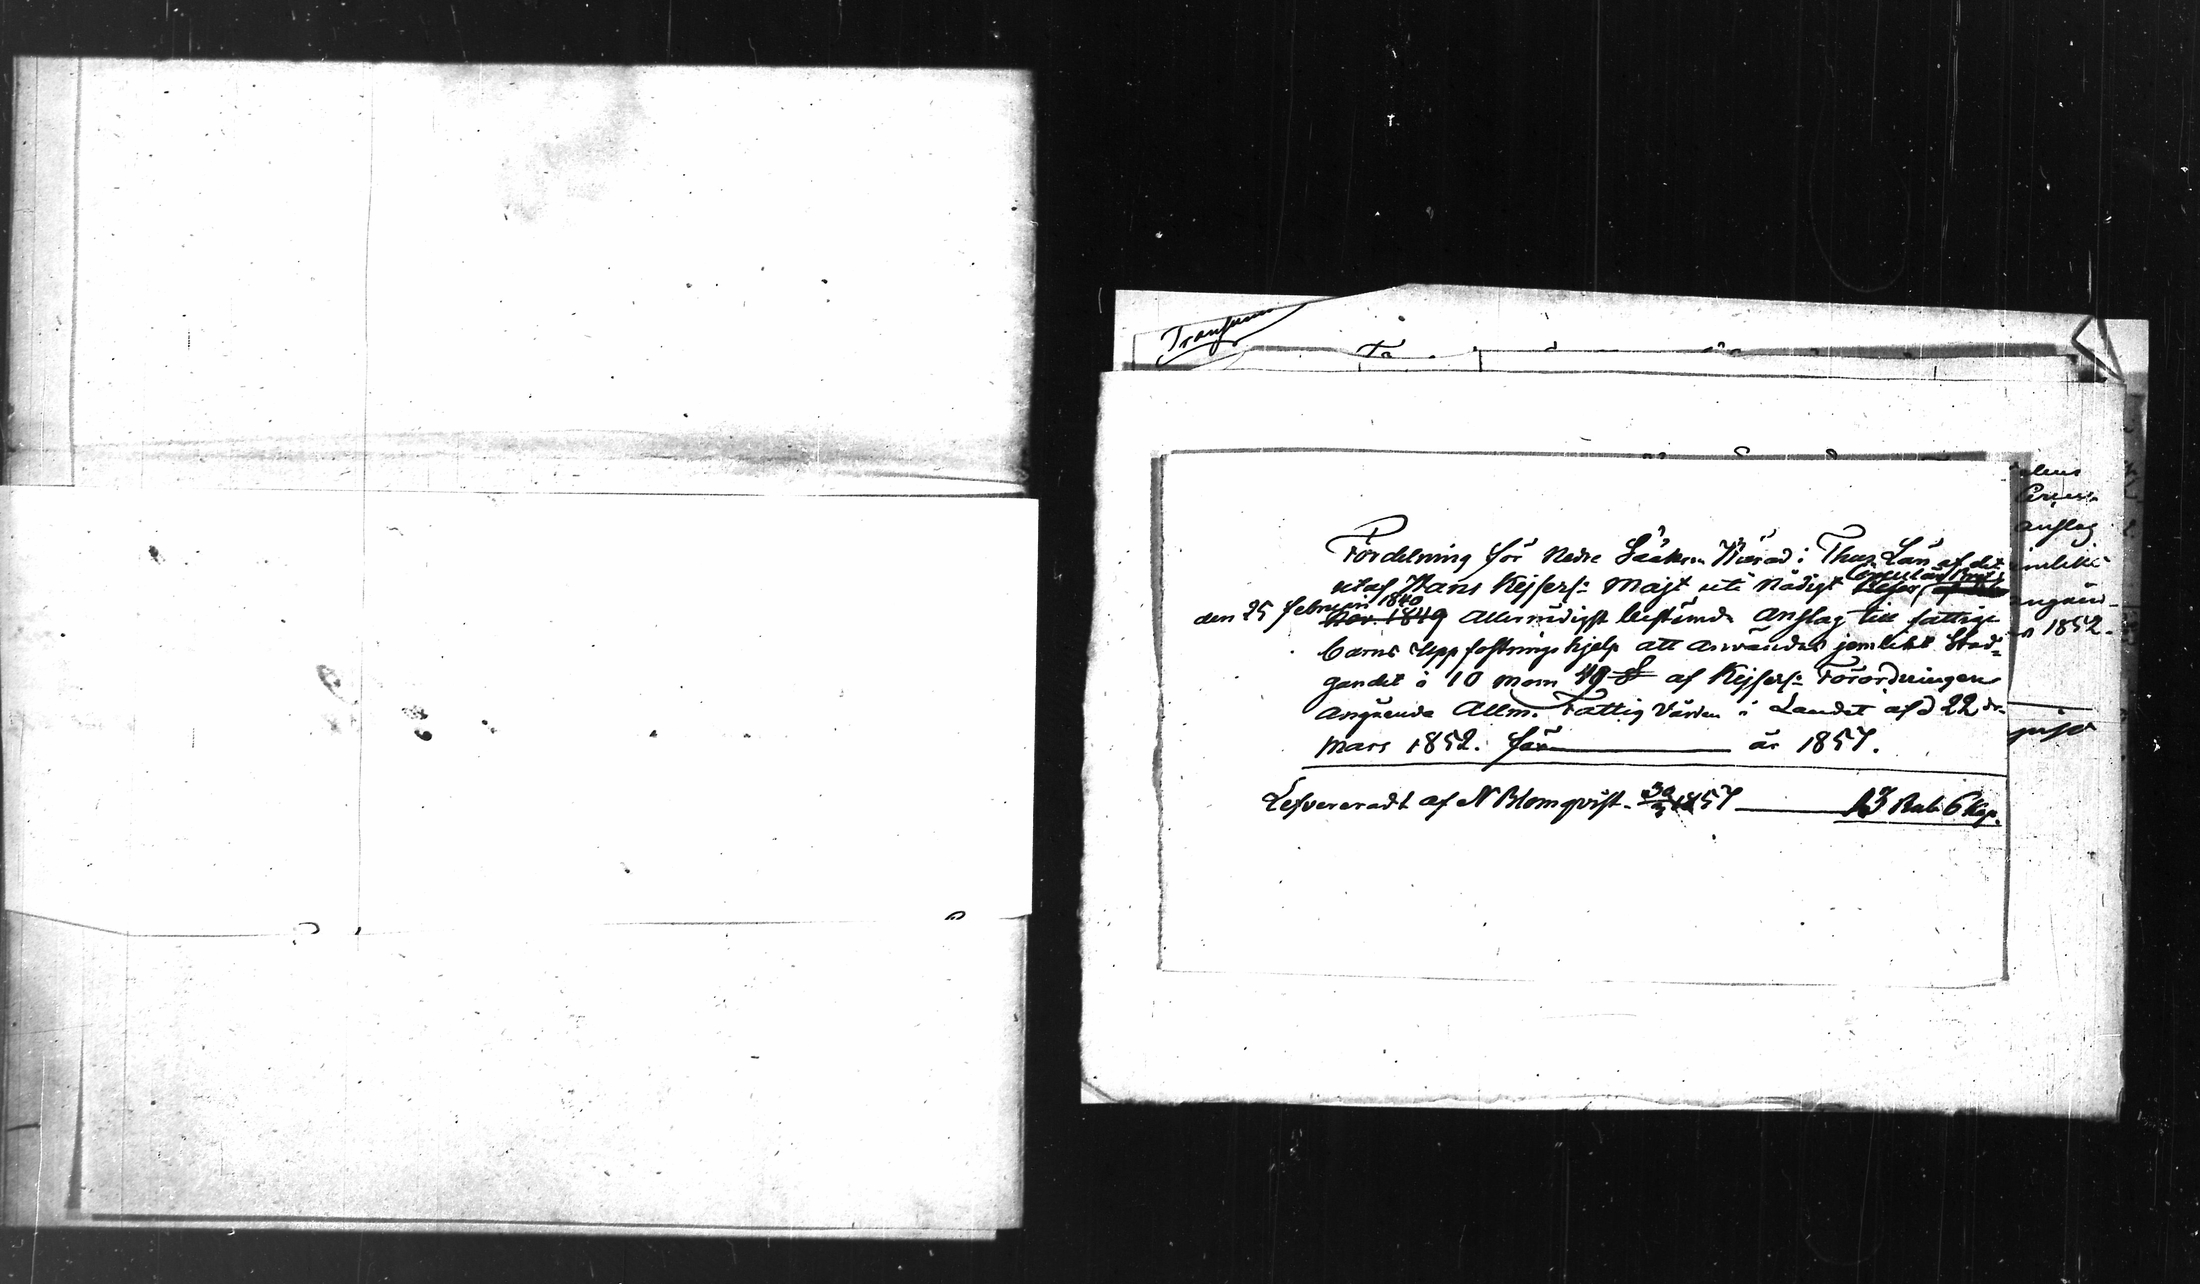 Fördelning för Nedre Sääksm. Härad i Thus Län af det
utaf Hans Kejserl: Majt uti Nådigt Circulär Bref
den 25 februari 1840
Nov. 1849 allernådigst bestämda anslag till fattige
barns uppfostringshjelp att användas jemlikt Stad-
gandet i 10 mom 49 § af Kejserl: Förordningen
angående Allm. Fattig Vården i Landet af d 22 dn
mars 1852. för år 1857.
Lefvereradt af N Blomqvist. 1857 13 Rub 6 Kop.
anslag
1852.